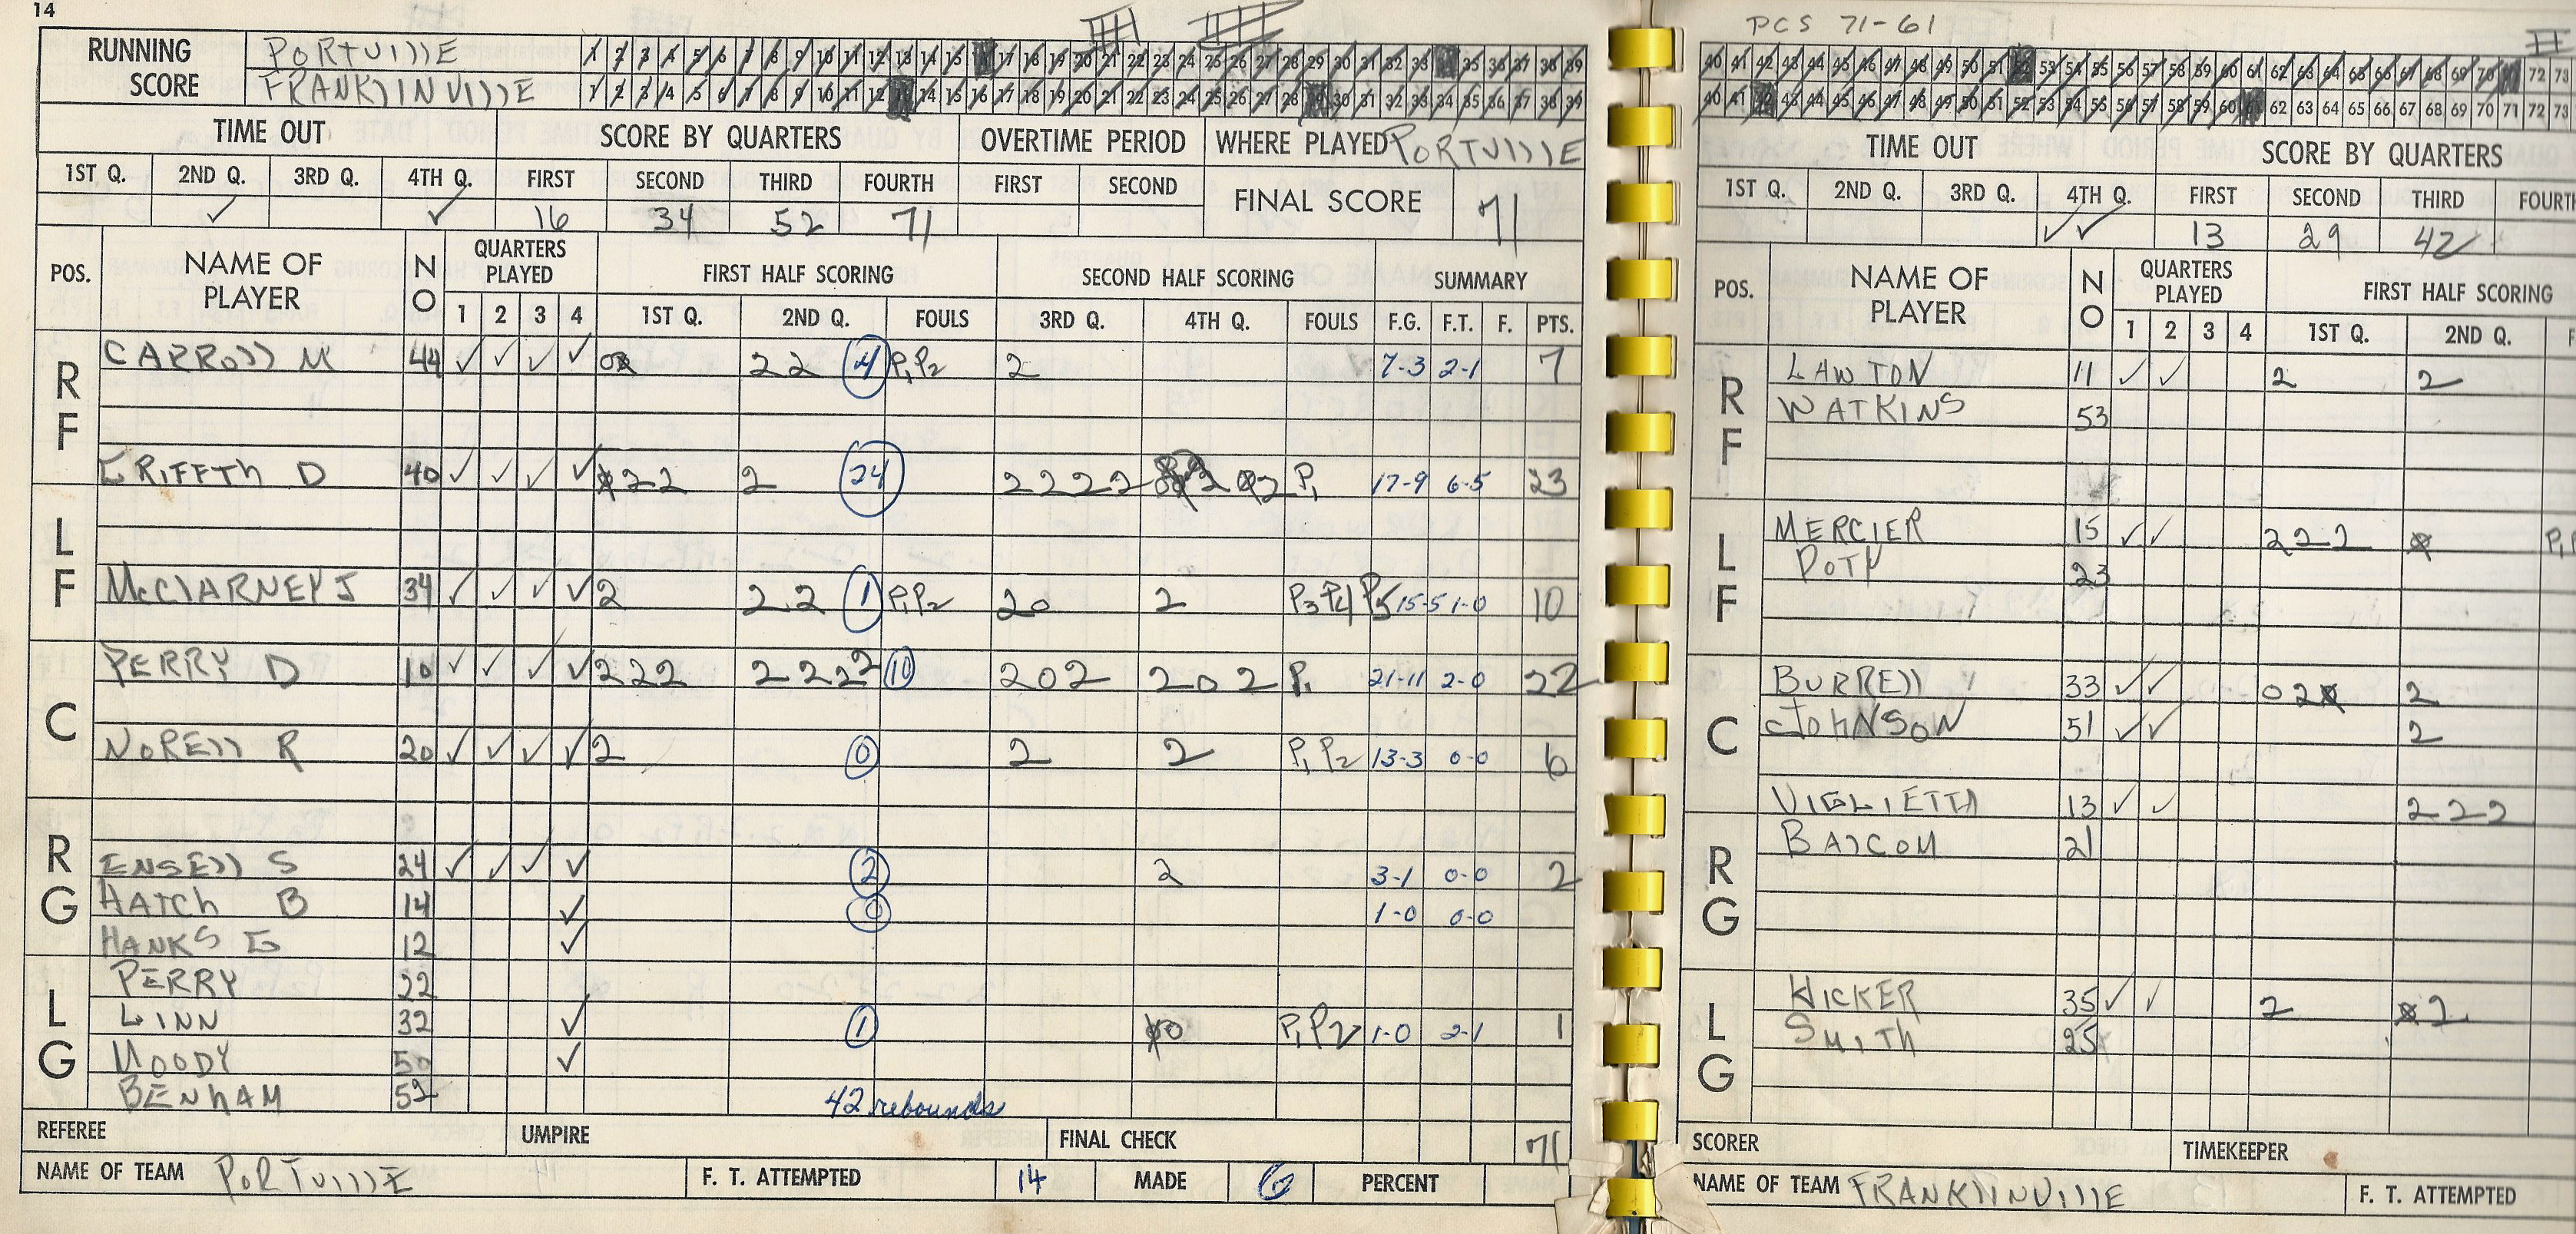 14
RUNNING SCORE PORTVILLE 1 2 3 4 5 6 7 8 9 10 11 12 13 14 15 17 18 19 20 21 22 23 24 25 26 27 28 29 30 31 32 33 35 36 37 38 39
FRANKLINVILLE 1 2 3 4 5 6 7 8 9 10 11 12 14 15 16 17 18 19 20 21 22 23 24 25 26 27 28 30 31 32 33 34 35 36 37 38 39
TIME OUT SCORE BY QUARTERS OVERTIME PERIOD WHERE PLAYED PORTVILLE
1ST Q. 2ND Q. 3RD Q. 4TH Q. FIRST SECOND THIRD FOURTH FIRST SECOND FINAL SCORE 71
✓ ✓ 16 34 52 71
POS. NAME OF PLAYER NO QUARTERS PLAYED FIRST HALF SCORING SECOND HALF SCORING SUMMARY
1 2 3 4 1ST Q. 2ND Q. FOULS 3RD Q. 4TH Q. FOULS F.G. F.T. F. PTS.
RF
CARROLL M 44 ✓ ✓ ✓ ✓ 22 4 P1 P2 2 7-3 2-1 7
GRIFFTH D 40 ✓ ✓ ✓ ✓ 22 2 24 2222 P1 17-9 6-5 23
LF
McCLARNEY J 34 ✓ ✓ ✓ ✓ 2 22 1 P1 P2 20 2 P3 P4 P5 15-5 1-0 10
PERRY D 10 ✓ ✓ ✓ ✓ 222 2222 10 202 202 P1 21-11 2-0 22
C
NORELL R 20 ✓ ✓ ✓ ✓ 2 0 2 2 P1 P2 13-3 0-0 6
RG
ENSELL S 24 ✓ ✓ ✓ ✓ 2 2 3-1 0-0 2
HATCH B 14 ✓ 0 1-0 0-0
HANKS G 12 ✓
LG
PERRY 22
LINN 32 ✓ 1 P1 P2 1-0 2-1 1
MOODY 50 ✓
BENHAM 52
42 rebounds
REFEREE UMPIRE FINAL CHECK 71
NAME OF TEAM PORTVILLE F. T. ATTEMPTED 14 MADE 6 PERCENT
PCS 71-61
40 41 42 43 44 45 46 47 48 49 50 51 53 54 55 56 57 58 59 60 61 62 63 64 65 66 67 68 69 70 72 73
40 41 43 44 45 46 47 48 49 50 51 52 53 54 55 56 57 58 59 60 62 63 64 65 66 67 68 69 70 71 72 73
TIME OUT SCORE BY QUARTERS
1ST Q. 2ND Q. 3RD Q. 4TH Q. FIRST SECOND THIRD FOURTH
✓✓ 13 29 42
POS. NAME OF PLAYER NO QUARTERS PLAYED FIRST HALF SCORING
1 2 3 4 1ST Q. 2ND Q.
RF
LAWTON 11 ✓ ✓ 2 2
WATKINS 53
LF
MERCIER 15 ✓ ✓ 222
DOTY 23
C
BURRELL 33 ✓ ✓ 02 2
JOHNSON 51 ✓ ✓ 2
VIGLIETTA 13 ✓ ✓ 222
RG
BALCOM 21
LG
HICKER 35 ✓ ✓ 2 2
SMITH 25
SCORER TIMEKEEPER
NAME OF TEAM FRANKLINVILLE F. T. ATTEMPTED